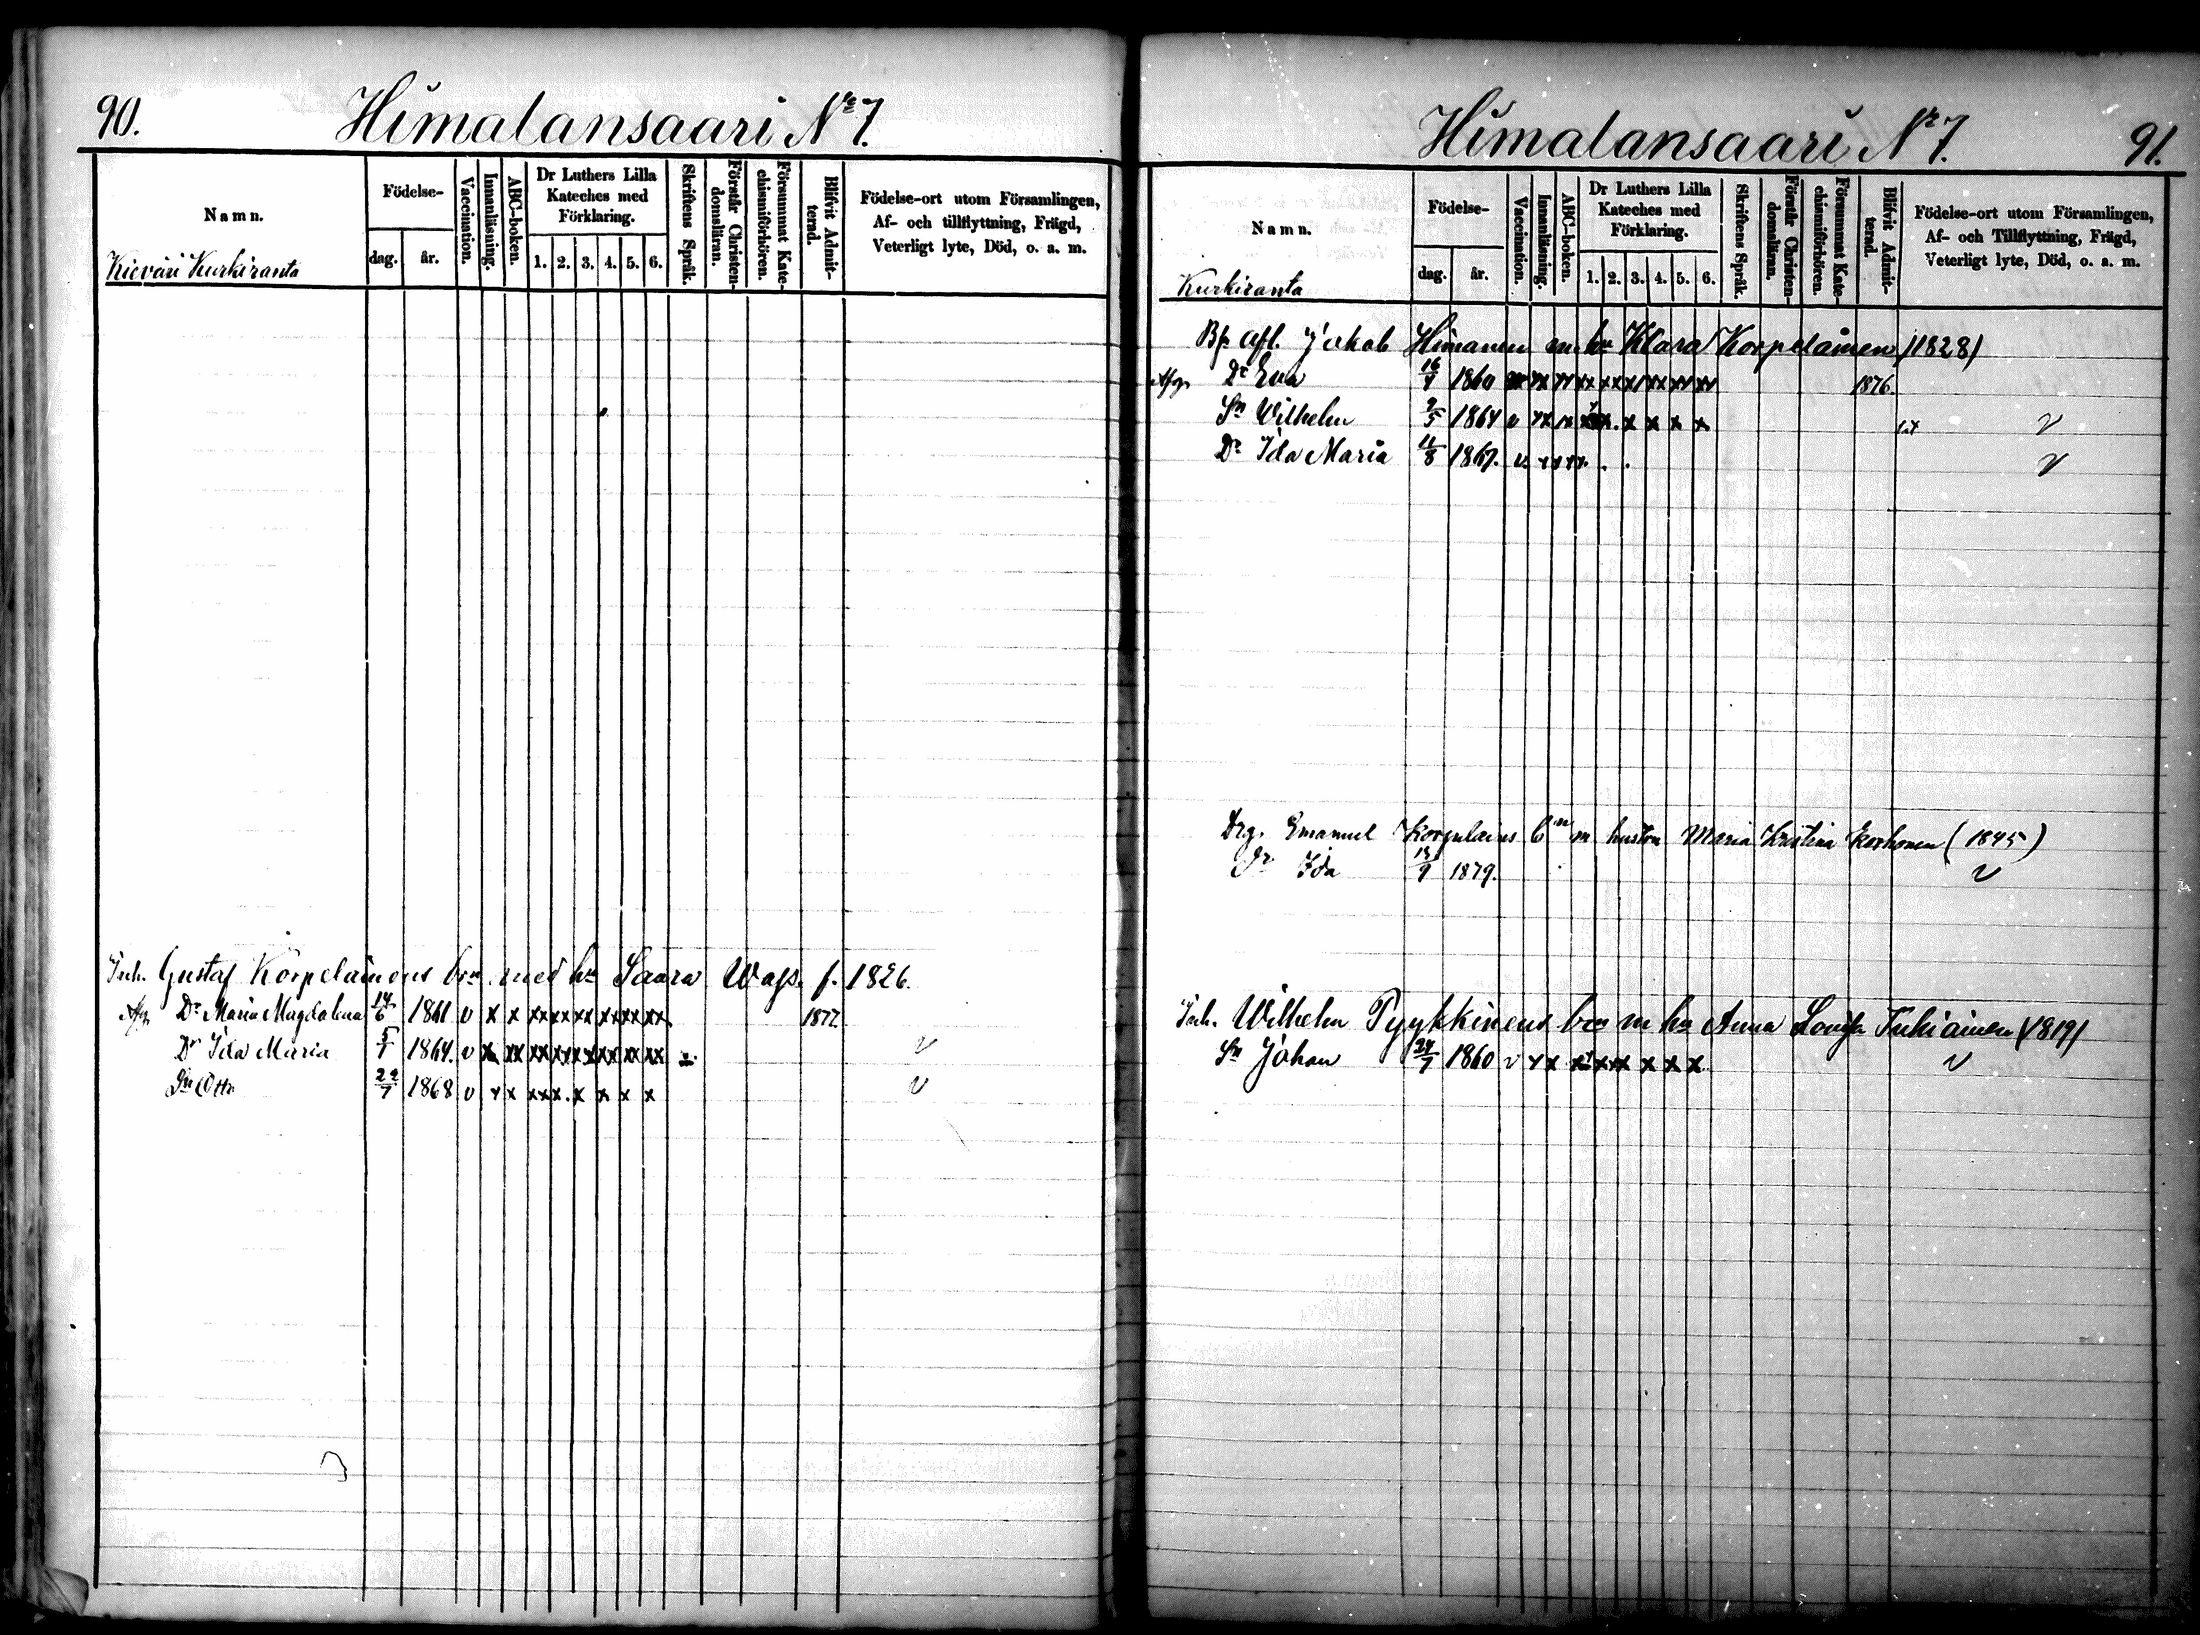 90.
Himalansaari No 7.
Namn.
Kieväri Kurkiranta
Födelse-
dag.
år.
Vaccination.
Innanläsning.
ABC-boken.
Dr Luthers Lilla Kateches med Förklaring.
1. 2. 3. 4. 5. 6.
Skriftens Språk.
Förstår Christen-domsläran.
Försummat Kate-chismiförhören.
Blifvit Admit-terad.
Födelse-ort utom Församlingen,
Af- och tillflyttning, Frägd,
Veterligt lyte, Död, o. a. m.
Inh. Gustaf Korpelainens brn med hu Saara Wass. f. 1826.
Afg. Dr Maria Magdalena 14/6 1861 v x x xx xx xx xx xx xx 1877
Dr Ida Maria 5/1 1864. v xx xx xx xx xx xx xx v
Sn Otto 22/7 1868 v x x xx x. x x x x v
Himalansaari No 7.
91.
Namn.
Kurkiranta
Födelse-
dag.
år.
Vaccination.
Innanläsning.
ABC-boken.
Dr Luthers Lilla Kateches med Förklaring.
1. 2. 3. 4. 5. 6.
Skriftens Språk.
Förstår Christen-domsläran.
Försummat Kate-chismiförhören.
Blifvit Admit-terad.
Födelse-ort utom Församlingen,
Af- och Tillflyttning, Frägd,
Veterligt lyte, Död, o. a. m.
afl. Jakob Himanen m. hu Klara Korpelainen /1828/
Afg. Dr Eva 16/7 1860 xx xx xx xx xx xx xx xx 1876.
Sn Wilhelm 2/5 1864 v xx xx x x x x v
Dr Ida Maria 11/8 1867. v v
Drg. Emanuel Korpelains bn m hustru Maria Kristina Korhonen (1845)
Dr Ida 13/9 1879. v
Inh. Wilhelm Pyykkinens brn m hu Anna Lovisa Tukiainen /1819/
Sn Johan 24/7 1860 v x x xx xx x x x v